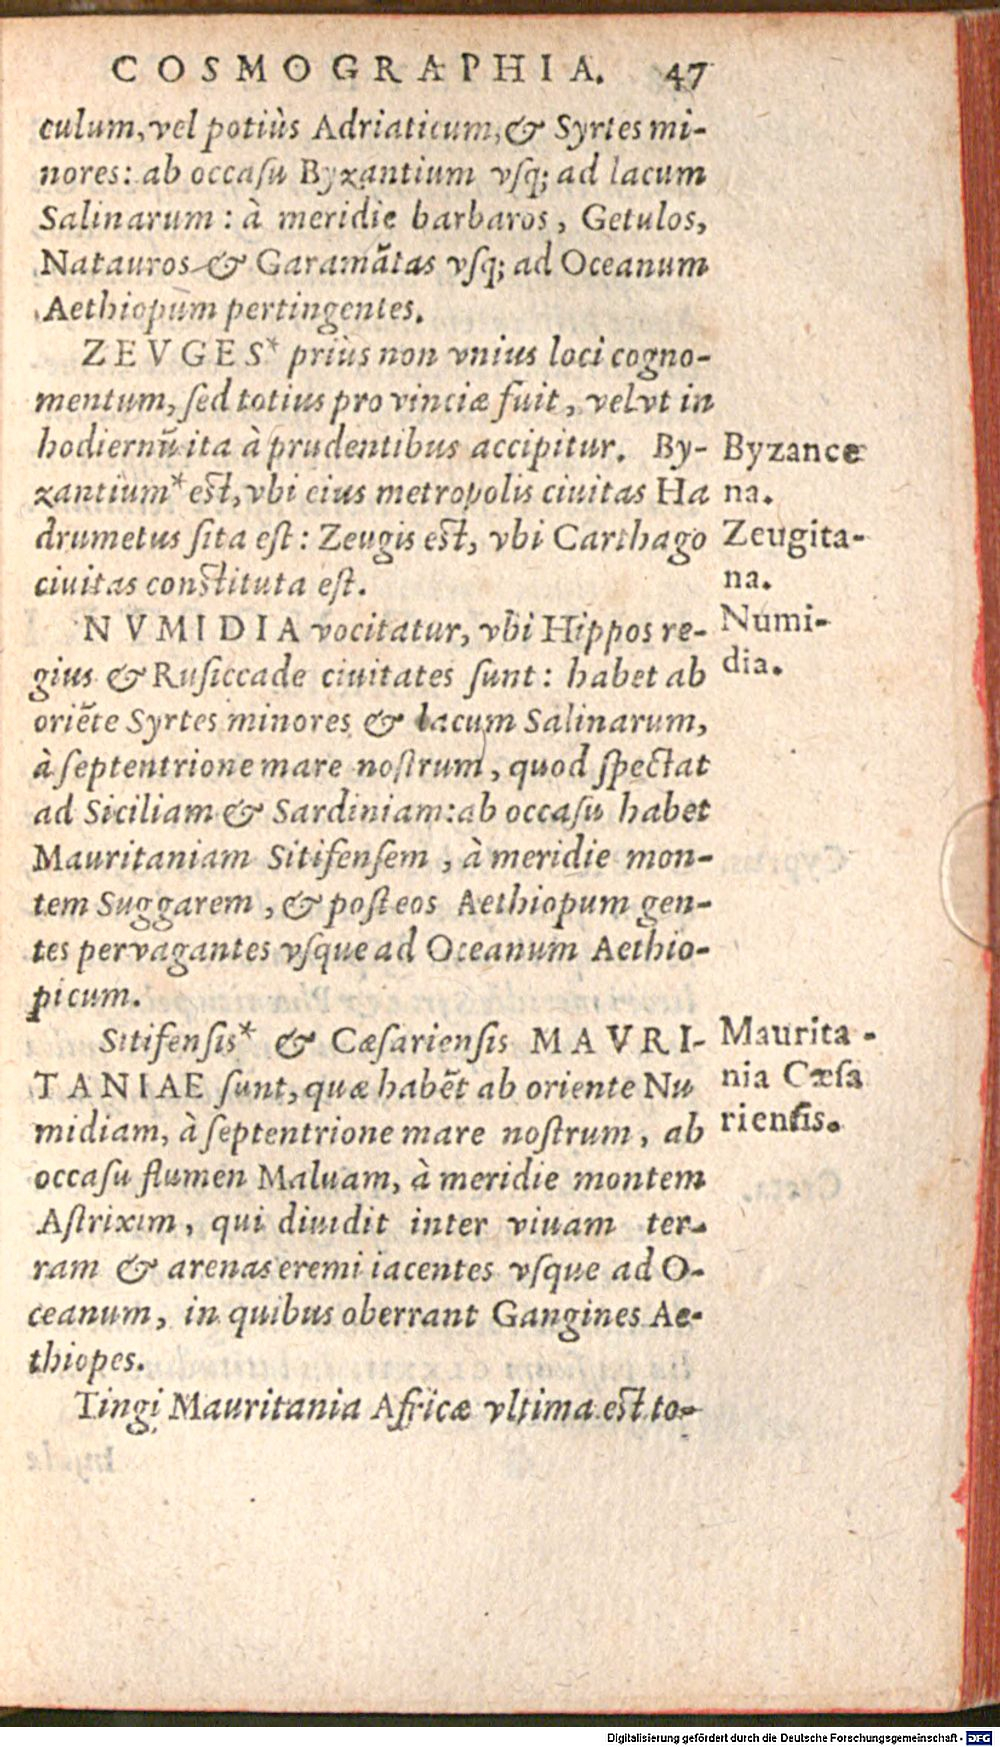 COSMOGRAPHIA. 47
culum, vel potiùs Adriaticum, & Syrtes mi-
nores: ab occasu Byzantium vsq; ad lacum
Salinarum: à meridie barbaros, Getulos,
Natauros & Garamãtas vsq; ad Oceanum
Aethiopum pertingentes.
ZEVGES* priùs non vnius loci cogno-
mentum, sed totius prouinciæ fuit, velut in
hodiernũ ita à prudentibus accipitur. By-
zantium* est, vbi eius metropolis ciuitas Ha
drumetus sita est: Zeugis est, vbi Carthago
ciuitas constituta est.
NVMIDIA vocitatur, vbi Hippos re-
gius & Rusiccade ciuitates sunt: habet ab
oriẽte Syrtes minores & lacum Salinarum,
à septentrione mare nostrum, quod spectat
ad Siciliam & Sardiniam: ab occasu habet
Mauritaniam Sitifensem, à meridie mon-
tem Suggarem, & post eos Aethiopum gen-
tes peruagantes vsque ad Oceanum Aethio-
picum.
Sitifensis* & Cæsariensis MAVRI-
TANIAE sunt, quæ habẽt ab oriente Nu
midiam, à septentrione mare nostrum, ab
occasu flumen Maluam, à meridie montem
Astrixim, qui diuidit inter viuam ter-
ram & arenas eremi iacentes vsque ad O-
ceanum, in quibus oberrant Gangines Ae-
thiopes.
Tingi Mauritania Africæ vltima est to-
Byzance
na.
Zeugita-
na.
Numi-
dia.
Maurita-
nia Cæsa
riensis.
Digitalisierung gefördert durch die Deutsche Forschungsgemeinschaft - DFG